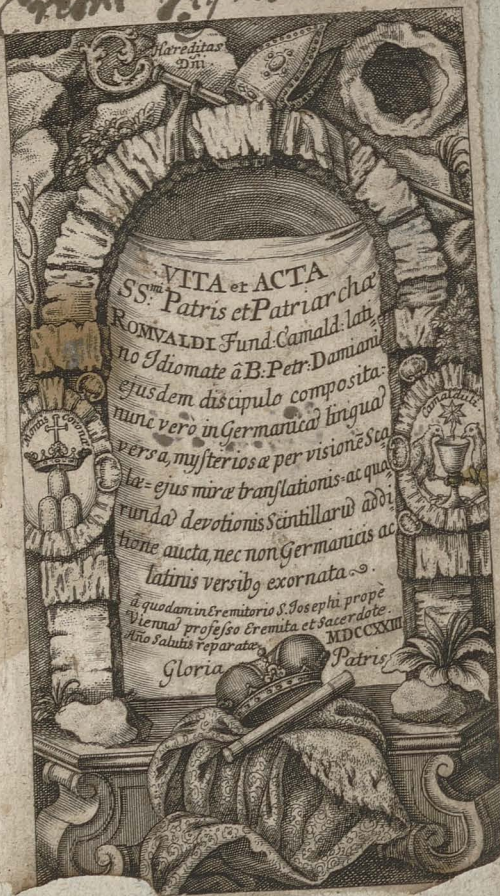 Hæreditas
Dñi
VITA et ACTA
SS:mi Patris et Patriarchæ
ROMVALDI Fund: Camald: lati-
no Idiomate â B: Petr: Damianu
ejusdem discipulo composita:
nunc verò in Germanicã linguã
versa, mysteriosæ per visionẽ Sca
læ=ejus miræ translationis-ac qua
rundã devotionis Scintillarũ addi
tione aucta, nec non Germanicis ac
latinis versibꝰ exornata
â quodam in Eremitorio S. Josephi propè
Viennã professo Eremita et Sacerdote.
Año Salutis reparatæ MDCCXXIII
Gloria Patris
Montis Coronæ
Camalduli